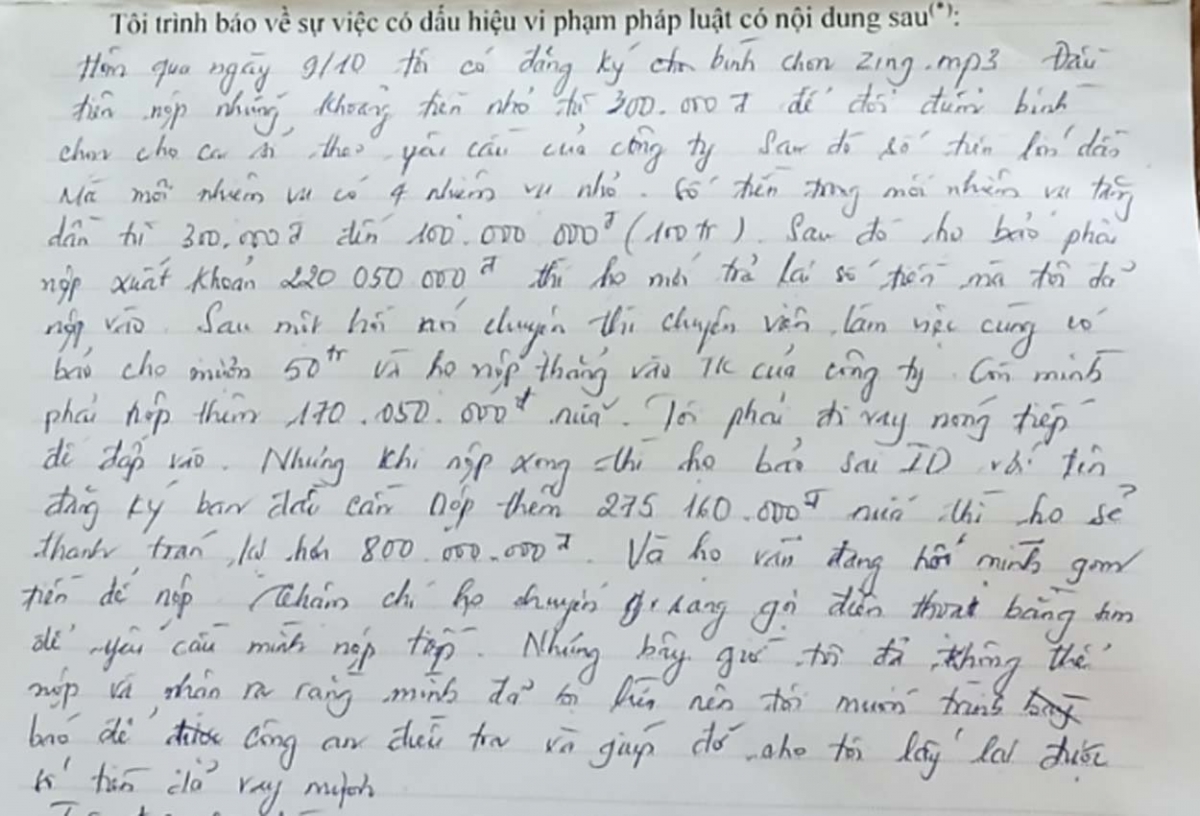 Tôi trình báo về sự việc có dấu hiệu vi phạm pháp luật có nội dung sau(*):
Hôm qua ngày 9/10 tôi có đăng ký bình chọn Zing.mp3 Đầu
tiên nộp những khoảng tiền nhỏ từ 300.000đ để đổi điểm bình
chọn cho ca sĩ theo yêu cầu của công ty Sau đó số tiền lớn dần
Mà mỗi nhiệm vụ có 4 nhiệm vụ nhỏ. Số tiền trong mỗi nhiệm vụ tăng
dần từ 300.000đ đến 100.000 000đ (100tr). Sau đó họ bảo phải
nộp xuất khoản 220 050 000đ thì họ mới trả lại số tiền mà tôi đã
nộp vào. Sau một hồi nói chuyện thì chuyên viên làm việc cùng có
báo cho mượn 50tr và họ nộp thẳng vào TK của công ty. Còn mình
phải nộp thêm 170.050.000đ nữa. Tôi phải đi vay nóng tiếp
để đắp vào. Nhưng khi nộp xong thì họ bảo sai ID với tên
đăng ký ban đầu cần nộp thêm 275 160.000đ nữa thì họ sẽ
thanh toán lại hơn 800.000.000đ. Và họ vẫn đang hối mình gom
tiền để nộp. Thậm chí họ chuyển sang gọi điện thoại bằng sim
để yêu cầu mình nộp tiếp. Nhưng bây giờ tôi đã không thể
nộp và nhận ra rằng mình đã bị lừa nên tôi muốn trình bày
báo để được công an điều tra và giúp đỡ cho tôi lấy lại được
số tiền đã vay mượn